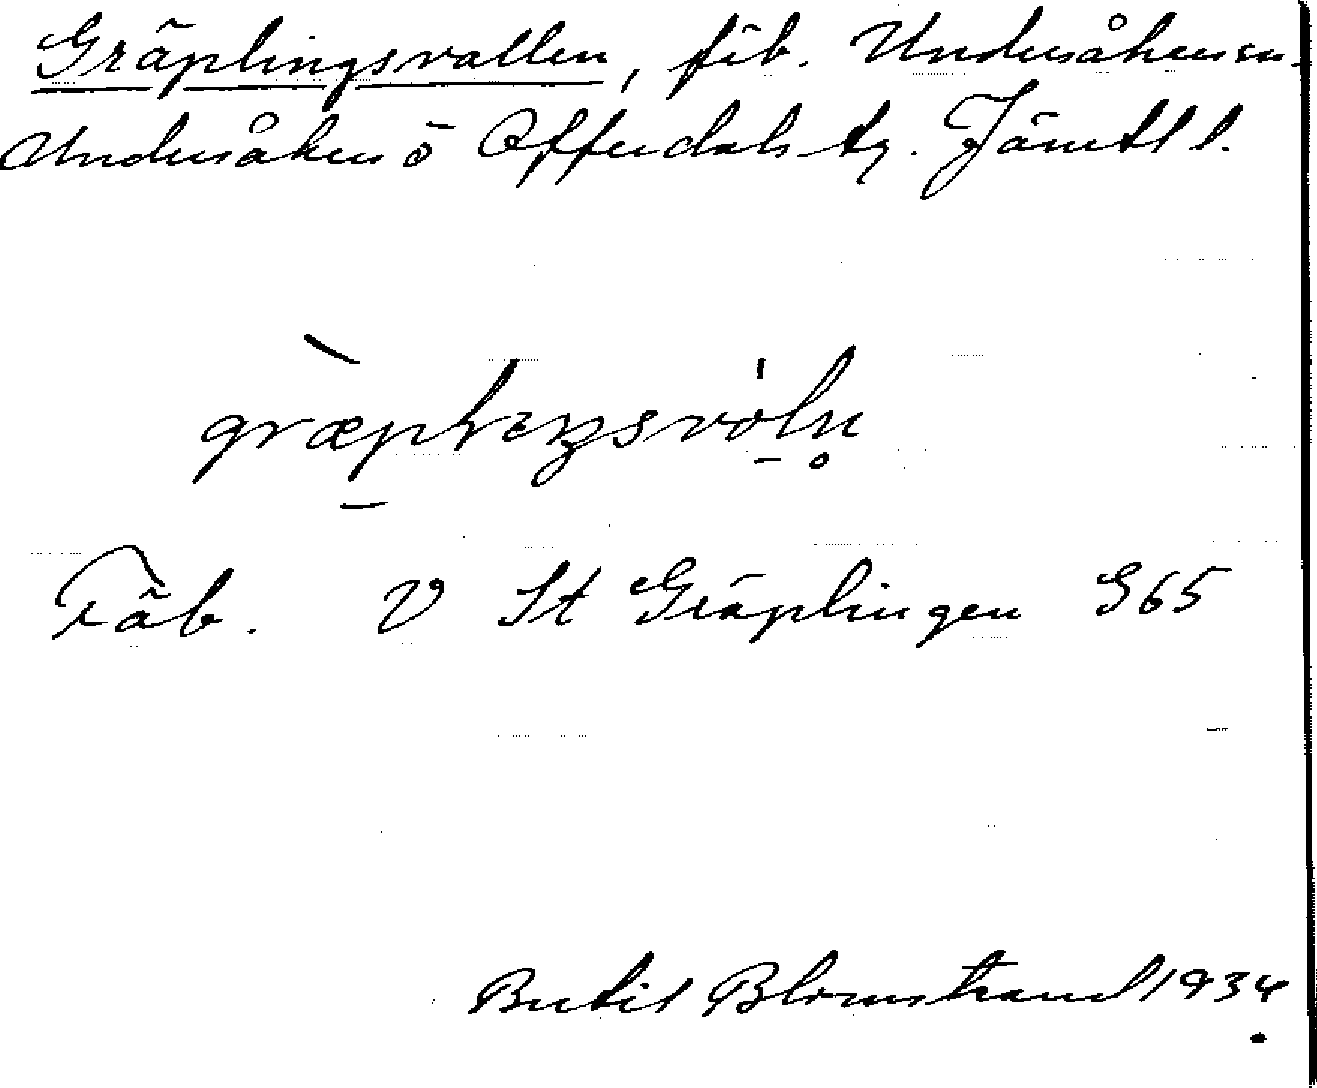 Gräplingsvallen, fäb. Undersåkers sn.
Undersåkers o Offerdals tg. Jämtl l.
græplıŋsvòln̥
Fäb. V St Gräplingen S65
Bertil Blomstrand 1934